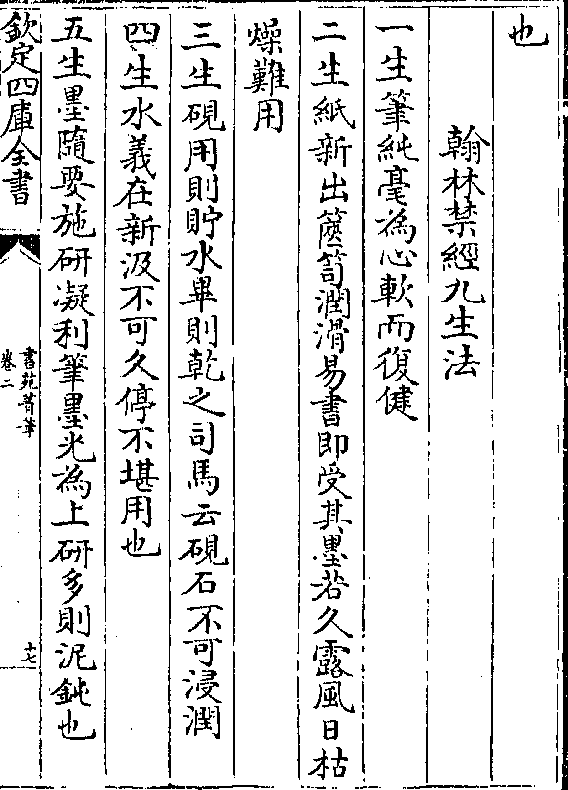 也
翰林禁經九生法
一生筆純毫為心軟而復健
二生紙新出篋笥潤滑易書即受其墨若久露風日枯
燥難用
三生硯用則貯水畢則乾之司馬云硯石不可浸潤
四生水義在新汲不可久停不堪用也
五生墨隨要施研凝利筆墨光為上研多則泥鈍也
欽定四庫全書
書苑菁華
卷二
十七